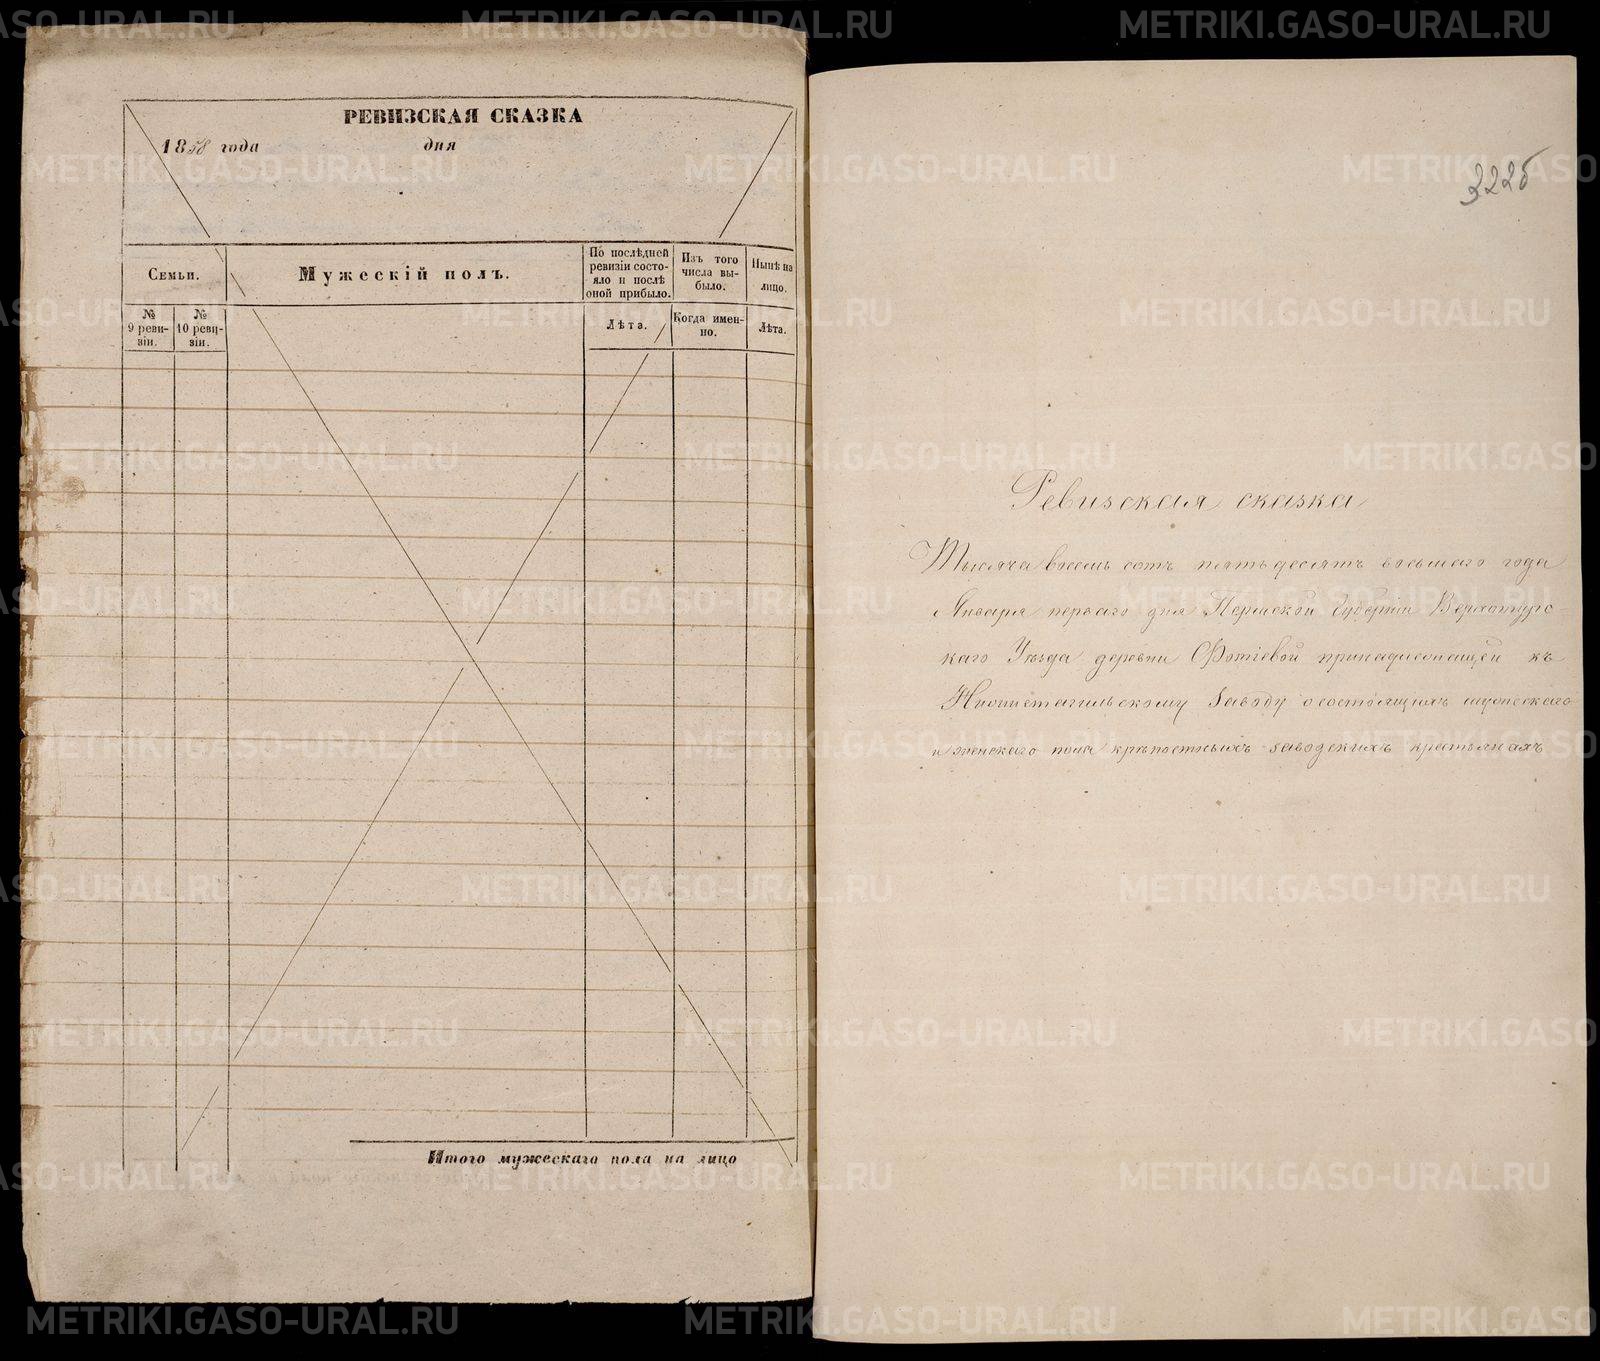 РЕВИЗСКАЯ СКАЗКА
1858 года дня
Семьи.
Мужескій полъ.
По послѣдней ревизіи состо-
яло и послѣ оной прибыло.
Изъ того числа вы-
было.
Нынѣ на лицо.
№ 9 реви-
зіи.
№ 10 реви-
зіи.
Лѣта.
Когда имен-
но.
Лѣта.
Итого мужескаго пола на лицо
322б
Ревизская сказка
Тысяча восемь сотъ пятьдесятъ восьмаго года
Января перваго дня Пермской Губерніи Верхотурс-
каго Уѣзда деревни Фотіевой принадлежащей къ
Нижнетагильскому Заводу о состоящихъ мужескаго
и женскаго пола крѣпостныхъ заводскихъ крестьянахъ
METRIKI.GASO-URAL.RU